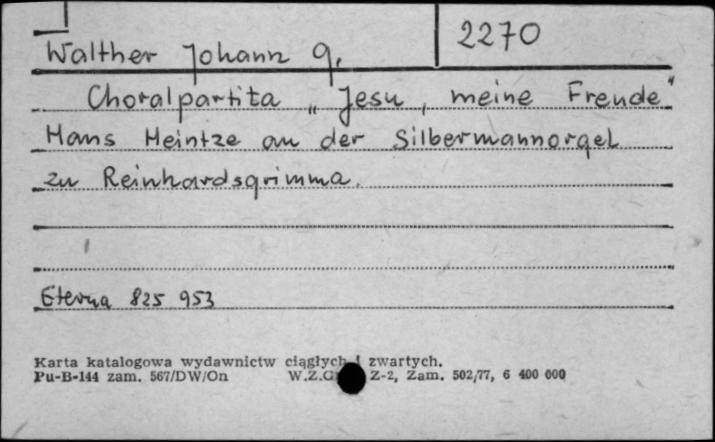 2270
Walther Johann G.
Choralpartita „Jesu, meine Freude"
Hans Heintze an der Silbermannorgel
zu Reinhardsgrimma.
Eterna 825 953
Karta katalogowa wydawnictw ciągłych i zwartych.
Pu-B-144 zam. 567/DW/On W.Z.G Z-2, Zam. 502/77, 6 400 000